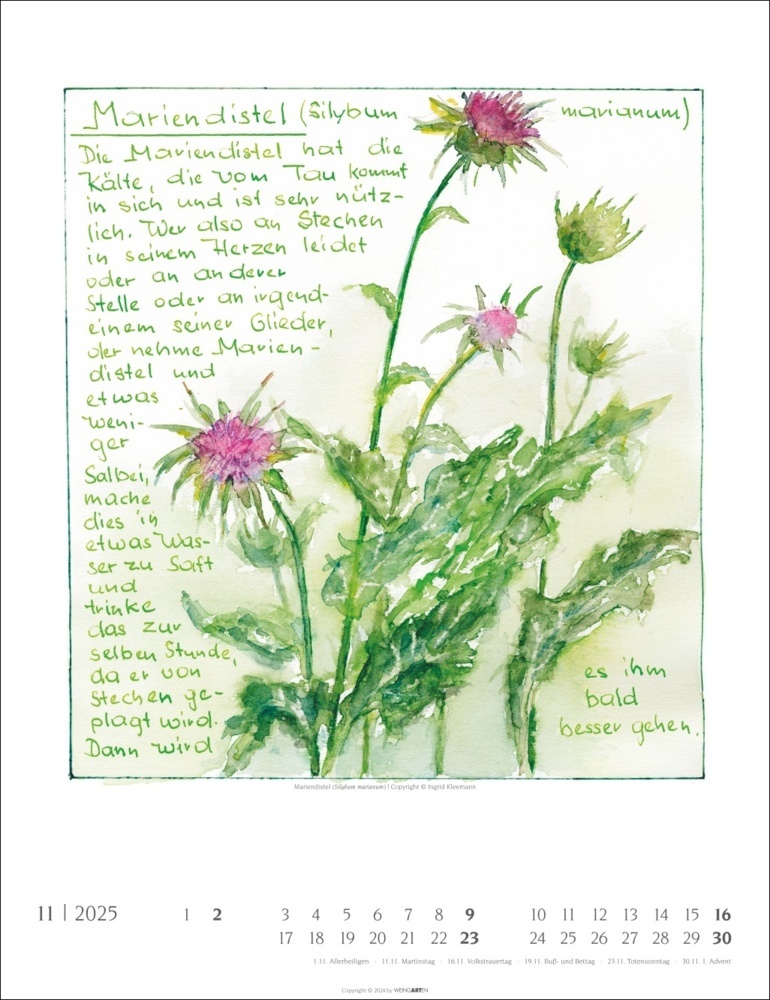 Mariendistel (Silybum marianum)
Die Mariendistel hat die
Kälte, die vom Tau kommt
in sich und ist sehr nütz-
lich. Wer also an Stechen
in seinem Herzen leidet
oder an anderer
Stelle oder an irgend-
einem seiner Glieder,
der nehme Marien-
distel und
etwas
weni-
ger
Salbei,
mache
dies in
etwas Was-
ser zu Saft
und
trinke
das zur
selben Stunde,
da er von
Stechen ge-
plagt wird.
Dann wird
es ihm
bald
besser gehen.
Mariendistel (Silybum marianum) | Copyright © Ingrid Kleemann
11 | 2025 1 2 3 4 5 6 7 8 9 10 11 12 13 14 15 16
17 18 19 20 21 22 23 24 25 26 27 28 29 30
1.11. Allerheiligen · 11.11. Martinstag · 16.11. Volkstrauertag · 19.11. Buß- und Bettag · 23.11. Totensonntag · 30.11. 1. Advent
Copyright © 2024 by WEINGARTEN